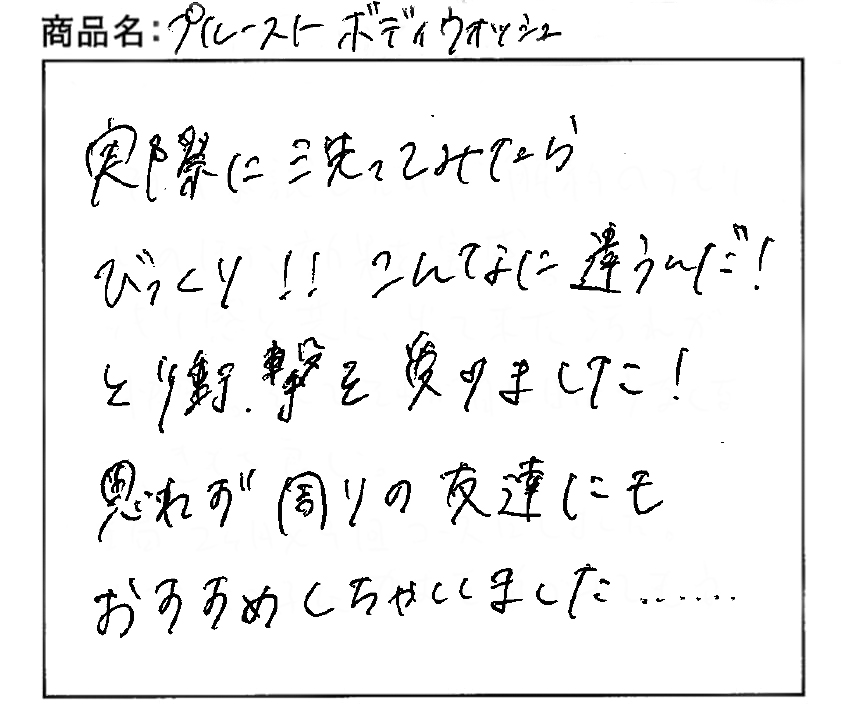 商品名：プルースト ボディウォッシュ
実際に洗ってみたら
びっくり!! こんなに違うんだ!
と衝撃を受けました!
思わず周りの友達にも
おすすめしちゃいました……